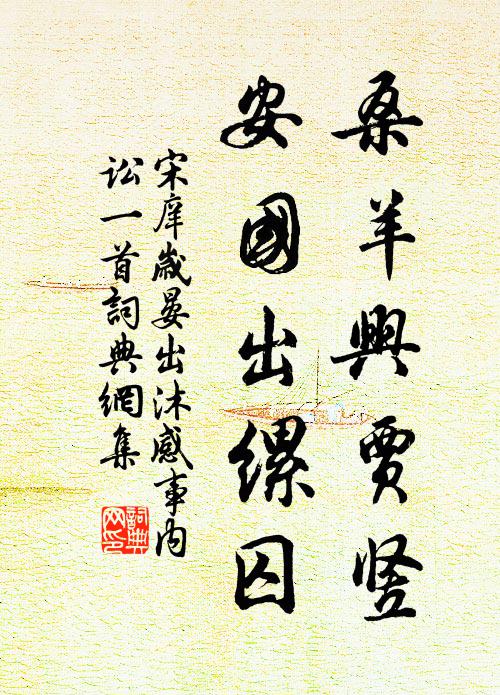 桑羊興賈豎
安國出縲囚
宋庠歲晏出沐感事內
訟一首詞典網集
詞典
网印